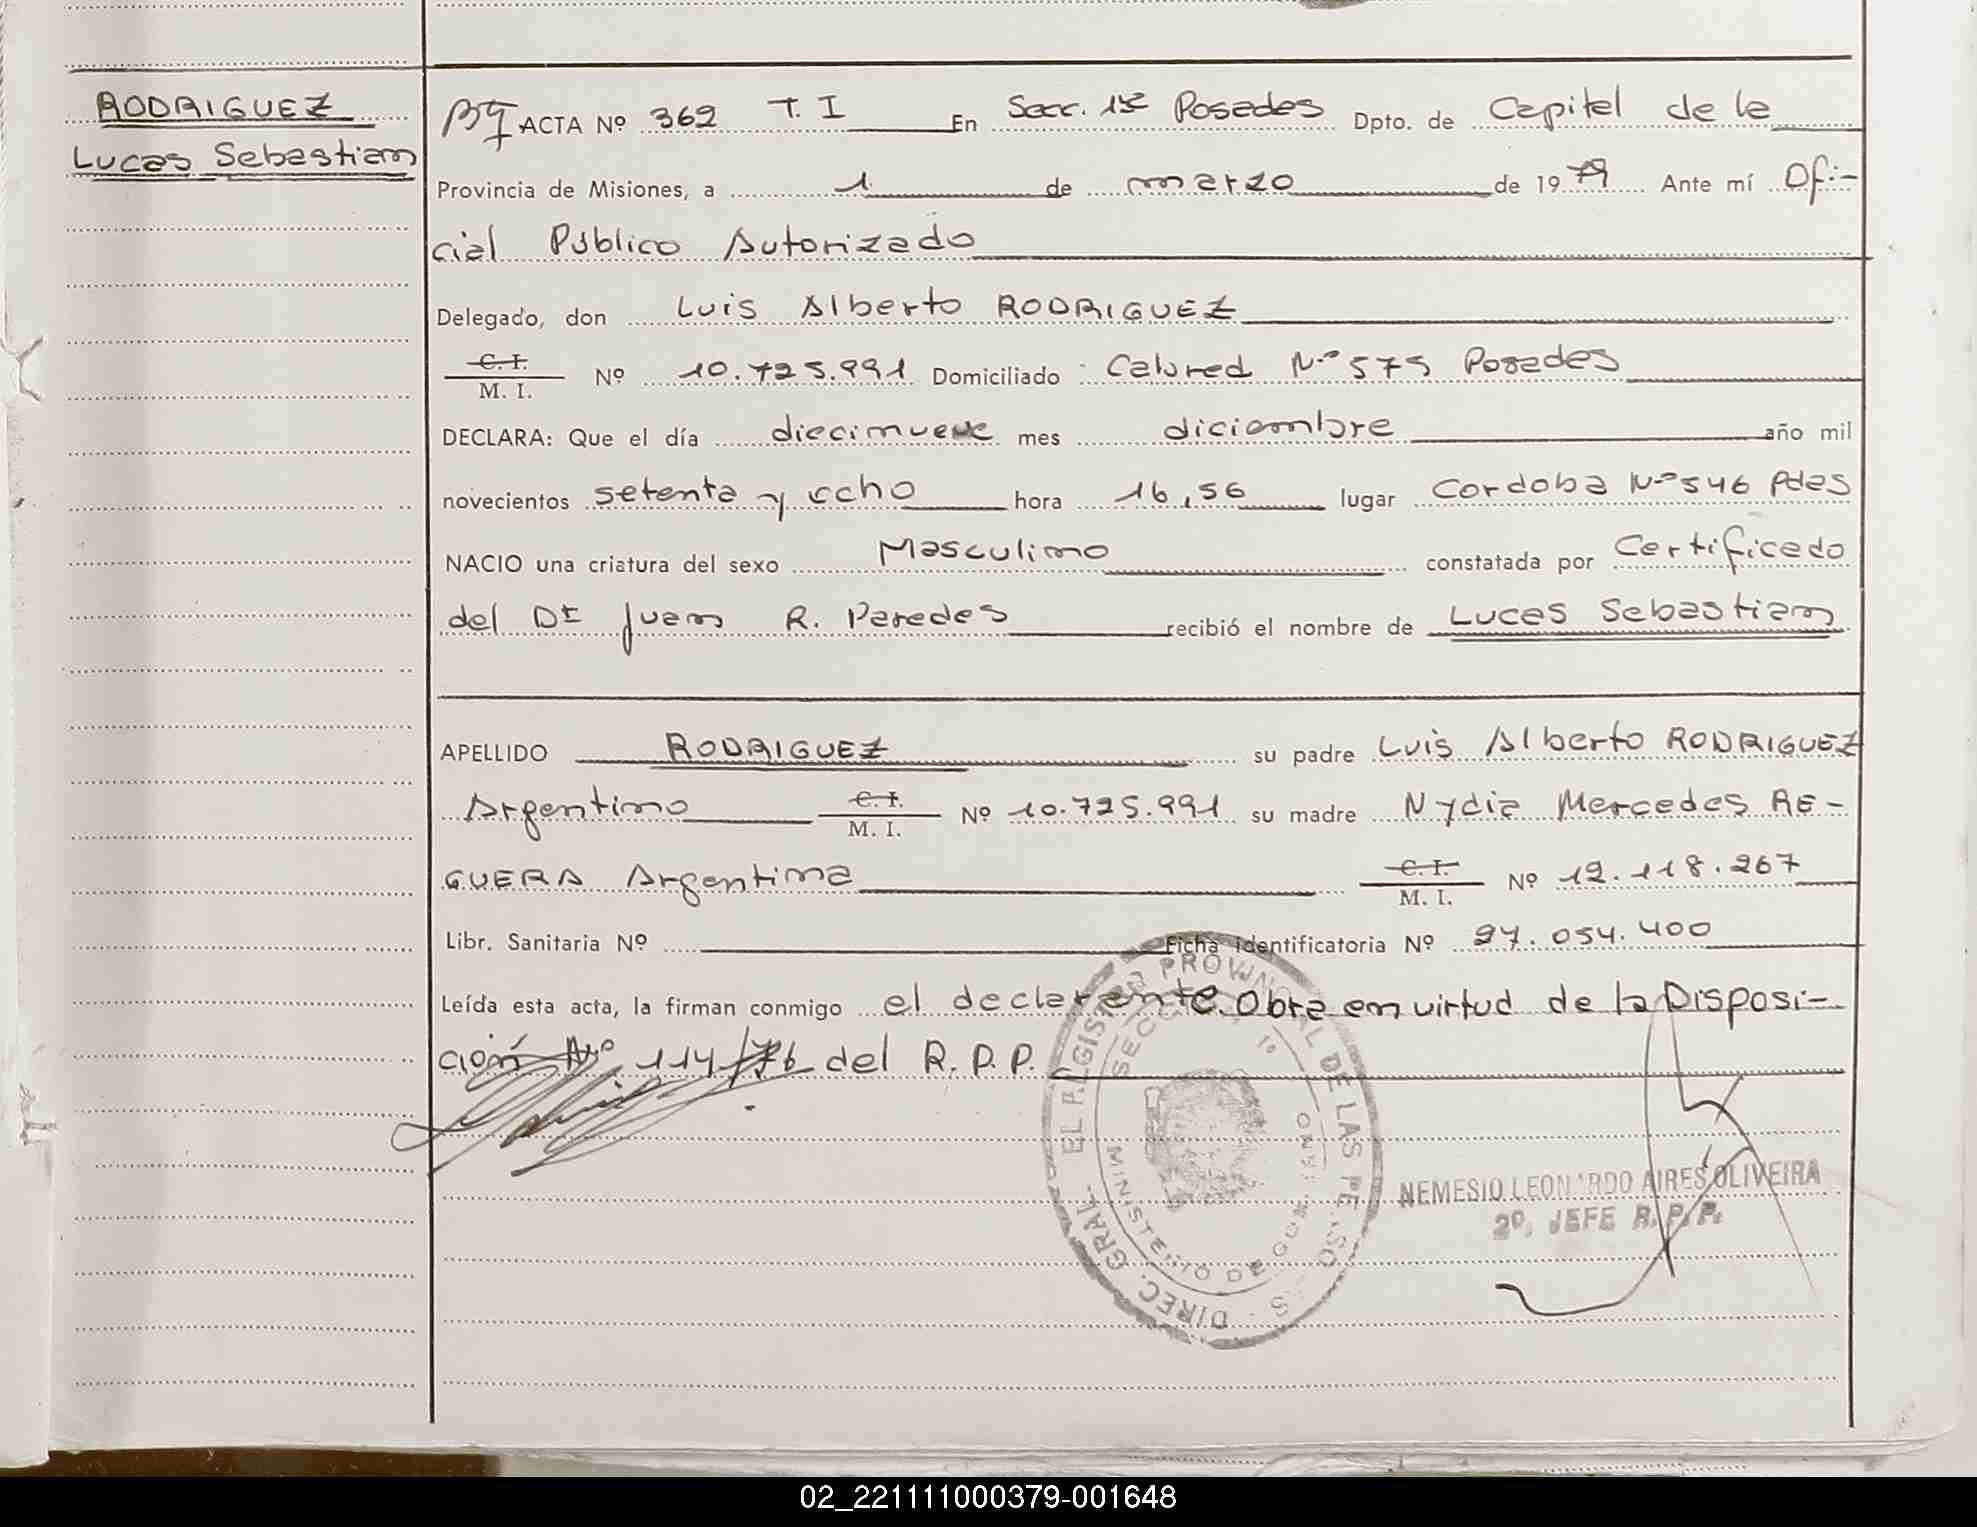 RODRIGUEZ
Lucas Sebastian
ACTA Nº 362 T. I En Secc. 1ª Posadas Dpto. de Capital de la
Provincia de Misiones, a 1 de marzo de 1979 Ante mí Ofi-
cial Público Autorizado
Delegado, don Luis Alberto RODRIGUEZ
C. I.
M. I. Nº 10.725.991 Domiciliado Cabred Nº 575 Posadas
DECLARA: Que el día diecinueve mes diciembre año mil
novecientos setenta y ocho hora 16,56 lugar Cordoba Nº 546 Pdas
NACIO una criatura del sexo Masculino constatada por Certificado
del Dr Juan R. Paredes recibió el nombre de Lucas Sebastian
APELLIDO RODRIGUEZ su padre Luis Alberto RODRIGUEZ
Argentino C. I. M. I. Nº 10.725.991 su madre Nydia Mercedes RE-
GUERA Argentina C. I. M. I. Nº 12.118.267
Libr. Sanitaria Nº Ficha identificatoria Nº 27.054.400
Leída esta acta, la firman conmigo el declarante. Obra en virtud de la Disposi-
ción Nº 114/76 del R.P.P.
DIREC. GRAL. DEL REGISTRO PROVINCIAL DE LAS PERSONAS
SECCION 1º
MINISTERIO DE GOBIERNO
NEMESIO LEONARDO AIRES OLIVEIRA
2º. JEFE R.P.P.
02_221111000379-001648